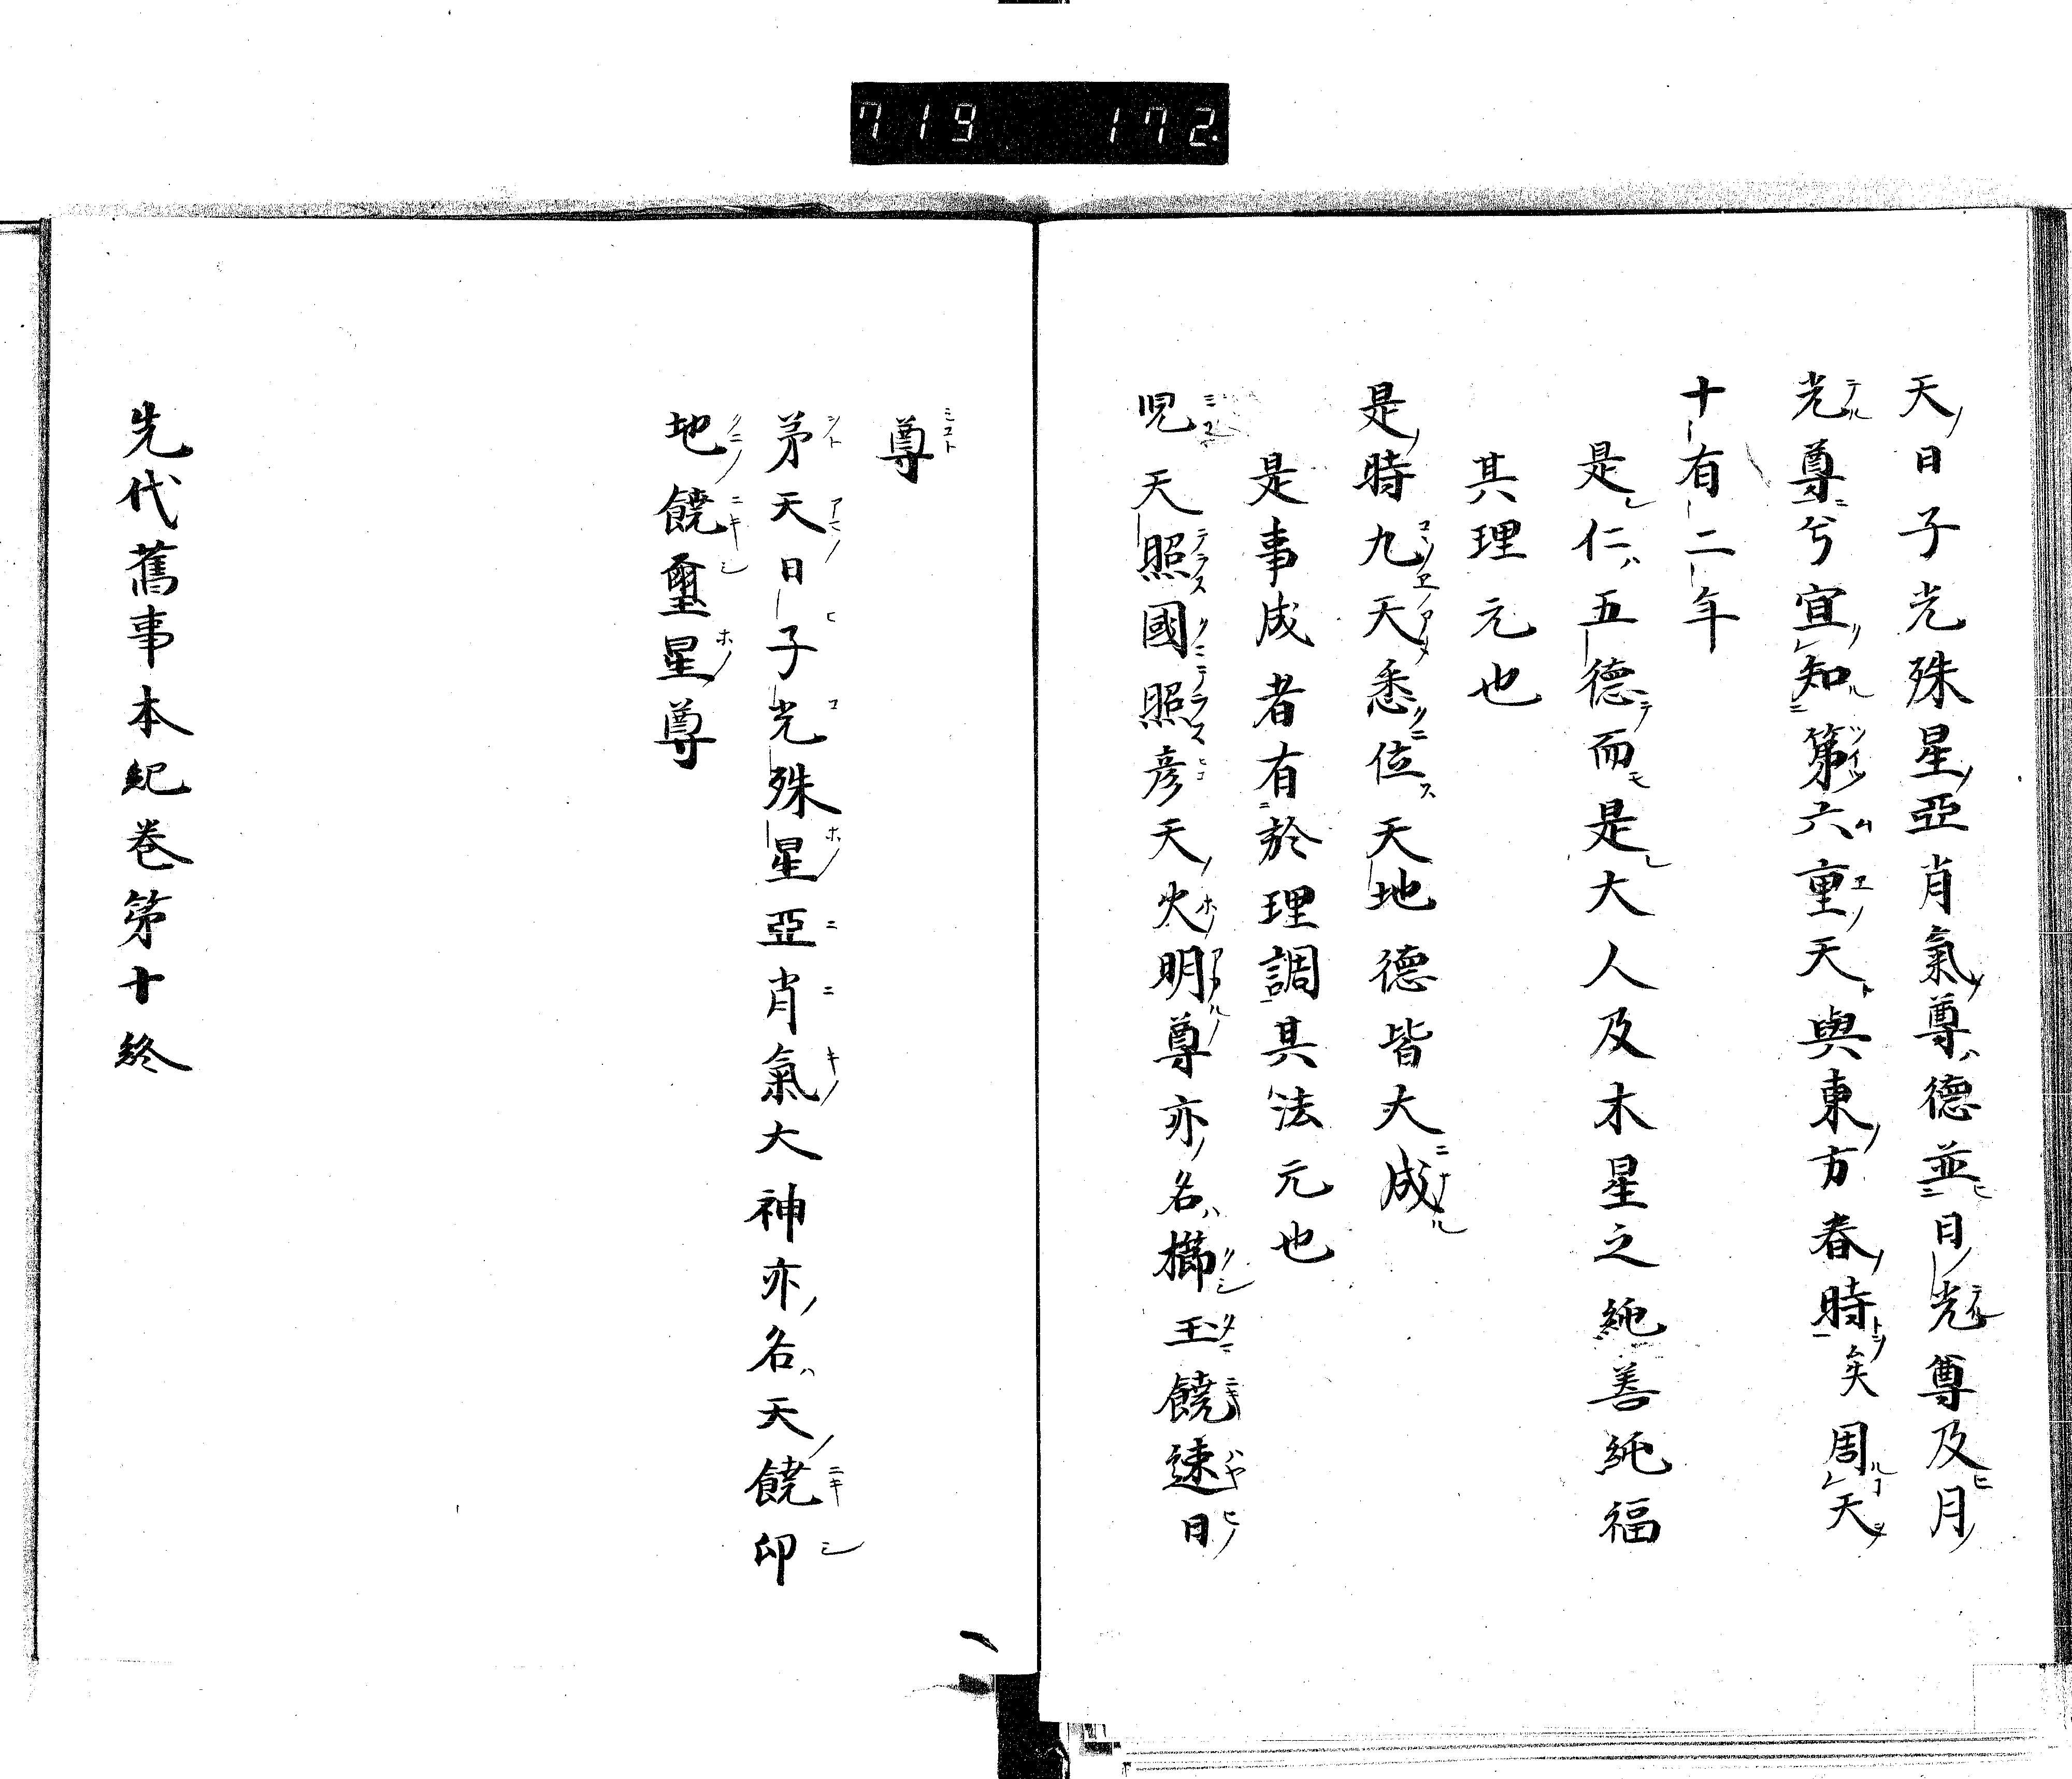 719 172.
天日子光殊星亞肖氣尊德並日光尊及月
光尊兮宜知第六重天與東方春時矣周天
十有二年
是仁五德而是大人及木星之純善純福
其理元也
是時九天悉位天地德皆大成
是事成者有於理調其法元也
児天照國照彦天火明尊亦名櫛玉饒速日
尊
弟天日子光殊星亞肖氣大神亦名天饒印
地饒璽星尊
先代舊事本紀巻第十終